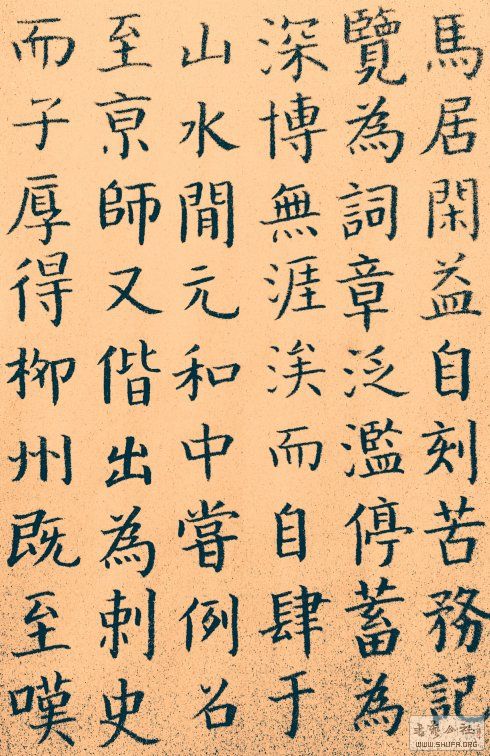 馬居閑益自刻苦務記
覽為詞章泛濫停蓄為
深博無涯涘而自肆于
山水閒元和中嘗例召
至亰師又偕出為刺史
而子厚得柳州既至嘆
书艺公社
WWW.SHUFA.ORG